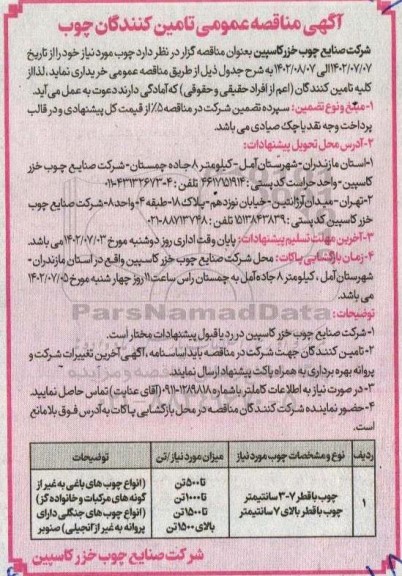 آگهی مناقصه عمومی تامین کنندگان چوب
شرکت صنایع چوب خزر کاسپین بعنوان مناقصه گزار در نظر دارد چوب مورد نیاز خود را از تاریخ
۱۴۰۲/۰۷/۰۷ الی ۱۴۰۲/۰۸/۰۷ به شرح جدول ذیل از طریق مناقصه عمومی خریداری نماید، لذا از
کلیه تامین کنندگان (اعم از افراد حقیقی و حقوقی) که آمادگی دارند دعوت به عمل می آید.
۱-مبلغ و نوع تضمین: سپرده تضمین شرکت در مناقصه ۵٪ از قیمت کل پیشنهادی و در قالب
پرداخت وجه نقد یا چک صیادی می باشد.
۲-آدرس محل تحویل پیشنهادات:
۱-استان مازندران-شهرستان آمل-کیلومتر ۸ جاده چمستان-شرکت صنایع چوب خزر
کاسپین-واحد حراست کد پستی: ۴۶۱۷۱۵۱۹۱۴ تلفن: ۴-۰۱۱۴۳۱۳۲۶۷۳
۲-تهران-میدان آرژانتین-خیابان نوزدهم-پلاک ۱۸-طبقه ۴-واحد ۸-شرکت صنایع چوب
خزر کاسپین کد پستی: ۱۵۱۳۸۴۳۸۳۹ تلفن: ۸۸۷۱۳۷۴۸-۰۲۱
۳-آخرین مهلت تسلیم پیشنهادات: پایان وقت اداری روز دوشنبه مورخ ۱۴۰۲/۰۷/۰۳ می باشد.
۴-زمان بازگشایی پاکات: محل شرکت صنایع چوب خزر کاسپین واقع در استان مازندران-
شهرستان آمل، کیلومتر ۸ جاده آمل به چمستان راس ساعت ۱۱ روز چهار شنبه مورخ ۱۴۰۲/۰۷/۰۵
می باشد.
توضیحات:
۱-شرکت صنایع چوب خزر کاسپین در رد یا قبول پیشنهادات مختار است.
۲-تامین کنندگان جهت شرکت در مناقصه باید اساسنامه، آگهی آخرین تغییرات شرکت و
پروانه بهره برداری به همراه پاکت پیشنهاد ارسال نمایند.
۳-در صورت نیاز به اطلاعات کاملتر با شماره ۰۹۱۱۰۱۲۸۹۸۱۸ (آقای عنایت) تماس حاصل نمایید.
۴-حضور نماینده شرکت کنندگان مناقصه در محل بازگشایی پاکات به آدرس فوق بلامانع
است.
ردیف نوع و مشخصات چوب مورد نیاز میزان مورد نیاز/تن توضیحات
۱ چوب با قطر ۷-۳۰ سانتیمتر
چوب با قطر بالای ۷ سانتیمتر
تا ۵۰۰ تن
تا ۱۰۰۰ تن
تا ۱۵۰۰ تن
بالای ۱۵۰۰ تن
(انواع چوب های باغی به غیر از
گونه های مرکبات و خانواده گز)
(انواع چوب های جنگلی دارای
پروانه به غیر از آنجیلی) صنوبر
شرکت صنایع چوب خزر کاسپین
ParsNamadData